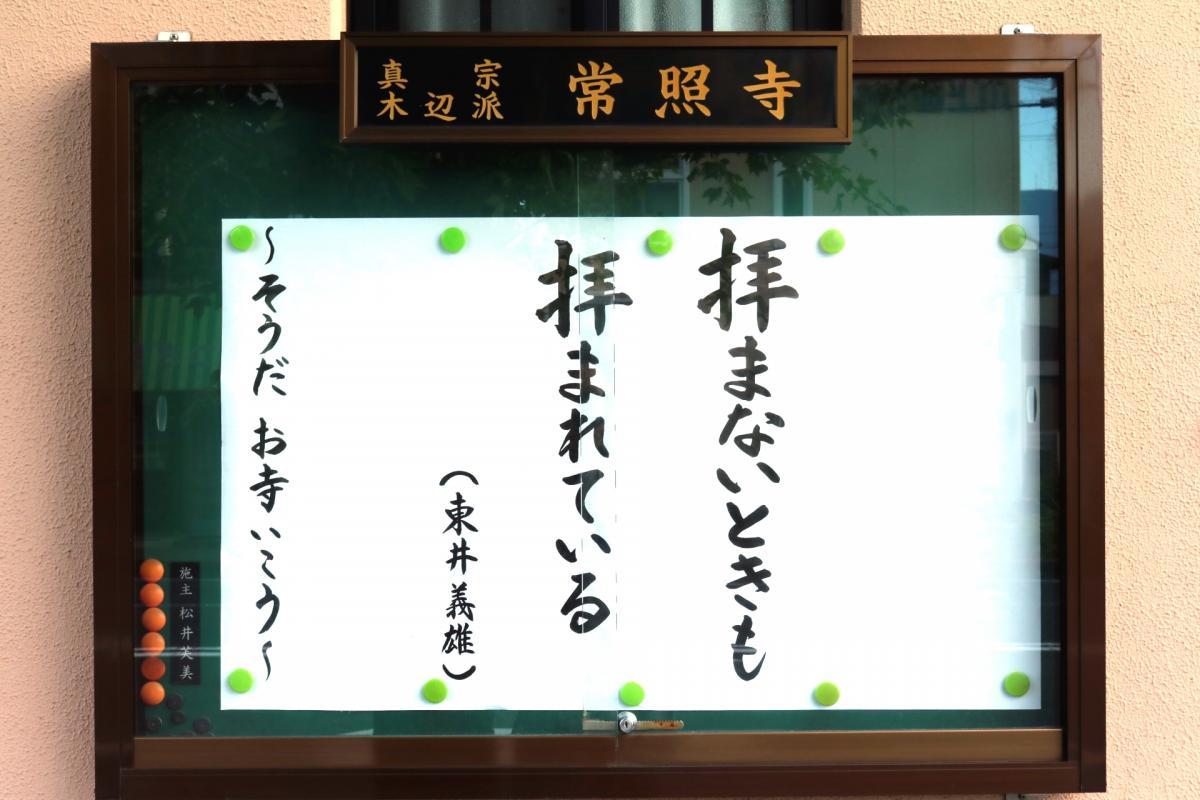 真宗
木辺派
常照寺
拝まないときも
拝まれている
(東井義雄)
~そうだ お寺いこう~
施主 松井芙美